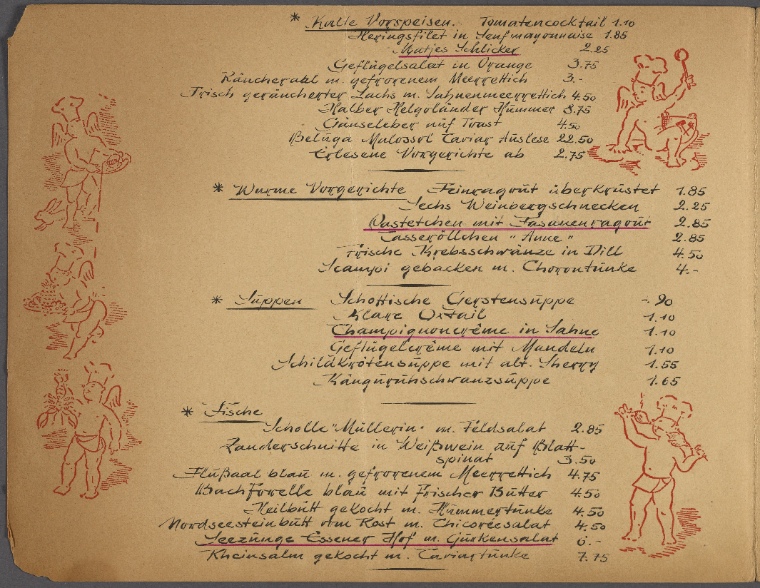 * Kalte Vorspeisen. Tomatencocktail 1.10
Heringsfilet in Senfmayonnaise 1.85
Matjes Schlicker 2.25
Geflügelsalat in Orange 3.75
Räucheraal m. gefrorenem Meerrettich 3.-
Frisch geräucherter Lachs m. Sahnenmeerrettich 4.50
Halber Helgoländer Hummer 8.75
Gänseleber auf Toast 4.50
Beluga Malossol Caviar Auslese 22.50
Erlesene Vorgerichte ab 2.75
* Warme Vorgerichte Feinragout überkrustet 1.85
Sechs Weinbergschnecken 2.25
Pastetchen mit Fasanenragout 2.85
Casseröllchen "Anne" 2.85
Frische Krebsschwänze in Dill 4.50
Scampi gebacken m. Chorontunke 4.-
* Suppen Schottische Gerstensuppe -.90
Klare Oxtail 1.10
Champignoncrème in Sahne 1.10
Geflügelcrème mit Mandeln 1.10
Schildkrötensuppe mit alt. Sherry 1.55
Känguruhschwanzsuppe 1.65
* Fische
Scholle "Müllerin" m. Feldsalat 2.85
Zanderschnitte in Weißwein auf Blatt-
spinat 3.50
Flußaal blau m. gefrorenem Meerrettich 4.75
Bachforelle blau mit frischer Butter 4.50
Heilbutt gekocht m. Hummertunke 4.50
Nordseesteinbutt vom Rost m. Chicoréesalat 4.50
Seezunge Essener Hof m. Gurkensalat 6.-
Rheinsalm gekocht m. Caviartunke 7.75